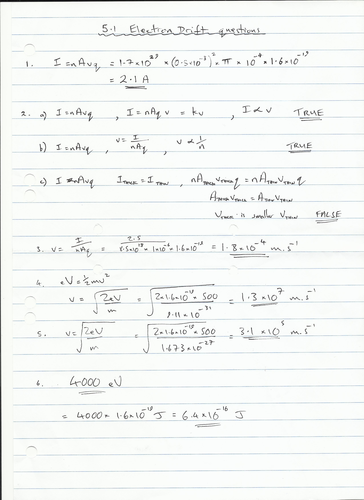 5.1 Electron Drift questions
1. I=nAvq = 1.7×10²⁹ × (0.5×10⁻³)² × π × 10⁻⁴ × 1.6×10⁻¹⁹
= 2.1 A
2. a) I=nAvq , I=nAq v = kv , I ∝ v TRUE
b) I=nAvq , v = I/nAq v ∝ 1/n TRUE
c) I = nAvq I_THICK = I_THIN , nA_THICK v_THICK q = nA_THIN v_THIN q
A_THICK v_THICK = A_THIN v_THIN
v_THICK is smaller v_THIN FALSE
3. v = I/nAq = 2.5/8.5×10²⁸ × 1×10⁻⁶ × 1.6×10⁻¹⁹ = 1.8×10⁻⁴ m.s⁻¹
4. eV=½mv²
v = √2eV/m = √2×1.6×10⁻¹⁹ × 500/9.11×10⁻³¹ = 1.3×10⁷ m.s⁻¹
5. v=√2eV/m = √2×1.6×10⁻¹⁹ × 500/1.673×10⁻²⁷ = 3.1×10⁵ m.s⁻¹
6. 4000 eV
= 4000 × 1.6×10⁻¹⁹ J = 6.4×10⁻¹⁶ J